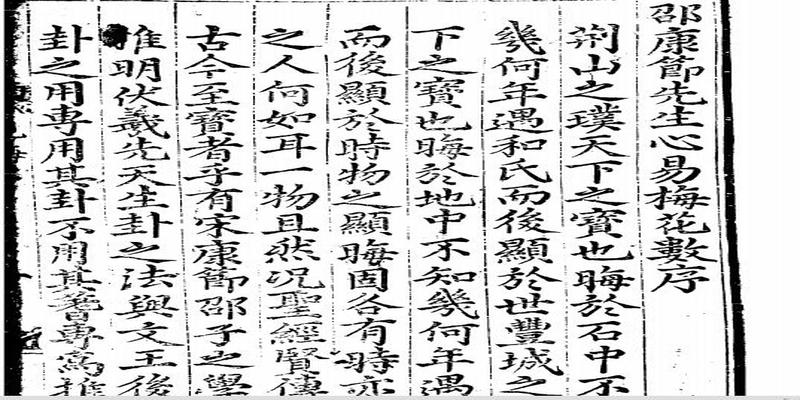 邵康節先生心易梅花數序
荊山之璞天下之寶也晦於石中不
幾何年遇和氏而後顯於世豐城之
下之寶也晦於地中不知幾何年遇
而後顯於時物之顯晦固各有時亦
之人何如耳一物且然况聖經賢傳
古今至寶者乎有宋康節邵子之學
推明伏羲先天生卦之法與文王後
卦之用専用其卦不用其蓍専爲推